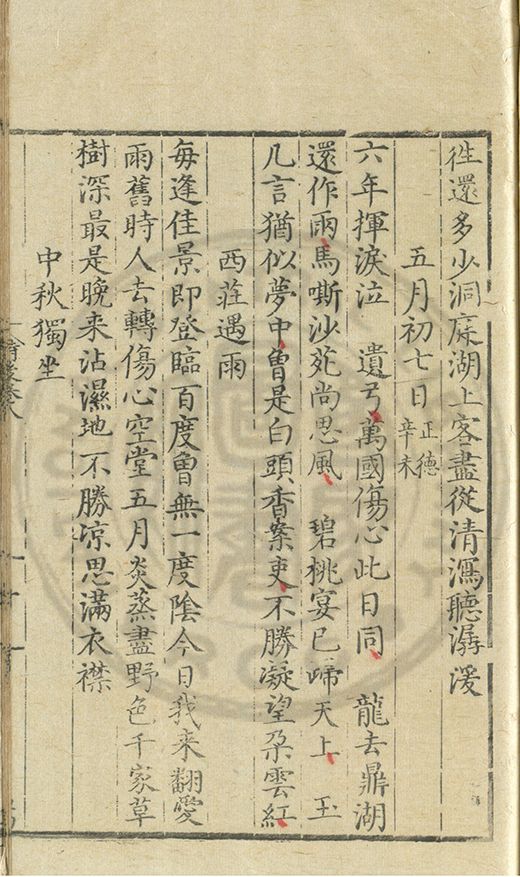 徃還多少洞庭湖上客盡從清瀉聽潺湲
五月初七日正德辛未
六年揮淚泣 遺弓萬國傷心此日同 龍去鼎湖
還作雨馬嘶沙苑尚思風 碧桃宴已歸天上 玉
几言猶似夢中曾是白頭香案吏不勝凝望朶雲紅
西莊遇雨
每逢佳景即登臨百度曾無一度陰今日我来翻愛
雨舊時人去轉傷心空堂五月炎蒸盡野色千家草
樹深最是晚来沾濕地不勝凉思滿衣襟
中秋獨坐